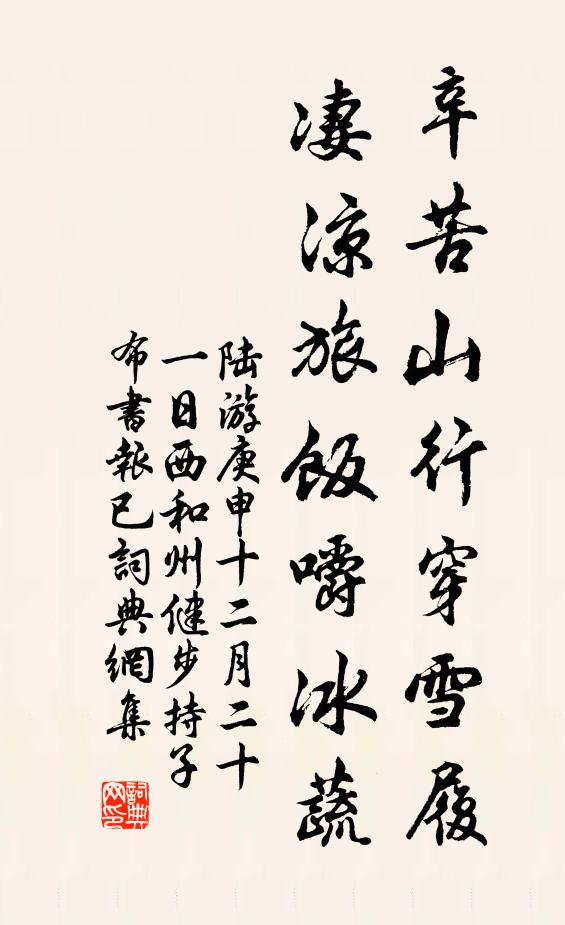 辛苦山行穿雪履
凄涼旅飯嚼冰蔬
陆游庚申十二月二十
一日西和州健步持子
布書報已詞典網集
詞典
网印